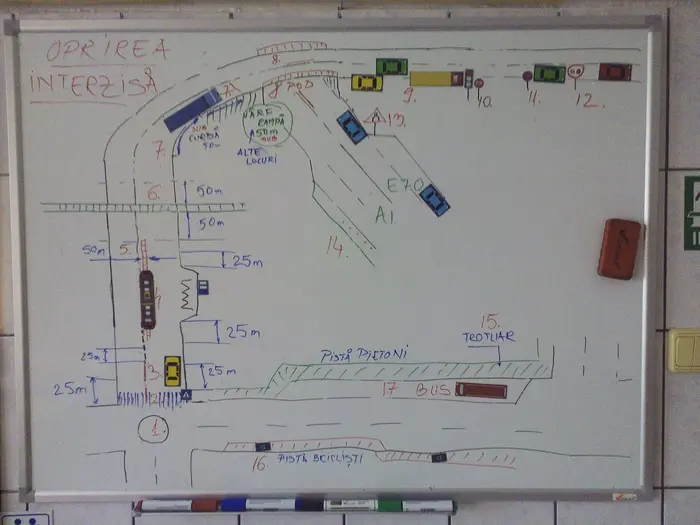 OPRIREA
INTERZISĂ
8.
8 POD
7A
MARE
RAMPĂ
50m
SUB
CURBĂ
50m
ALTE
LOCURI
7.
9.
10.
11.
12.
13.
E70
A1
14.
6.
50m
50m
50m
5.
25m
4
25m
25m
3.
25m
25m
2
1.
15.
TROTUAR
PISTĂ PIETONI
17 BUS
16.
PISTĂ BICICLIȘTI